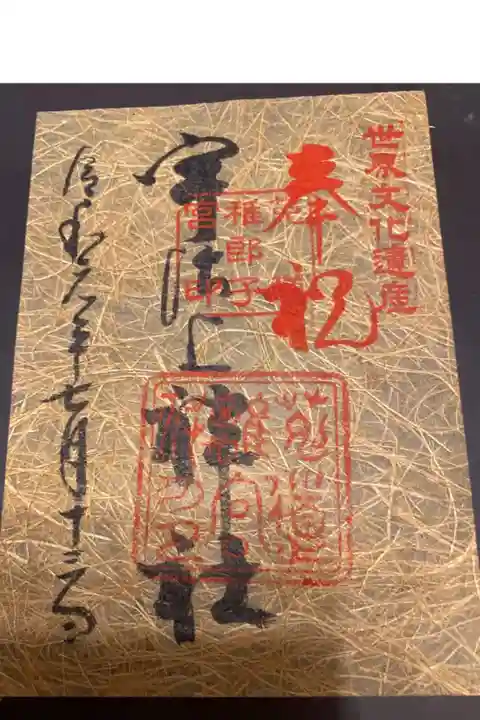 世界文化遺産
奉祝
宇治上神社
稚郎子
宮印
令和元年七月十三日